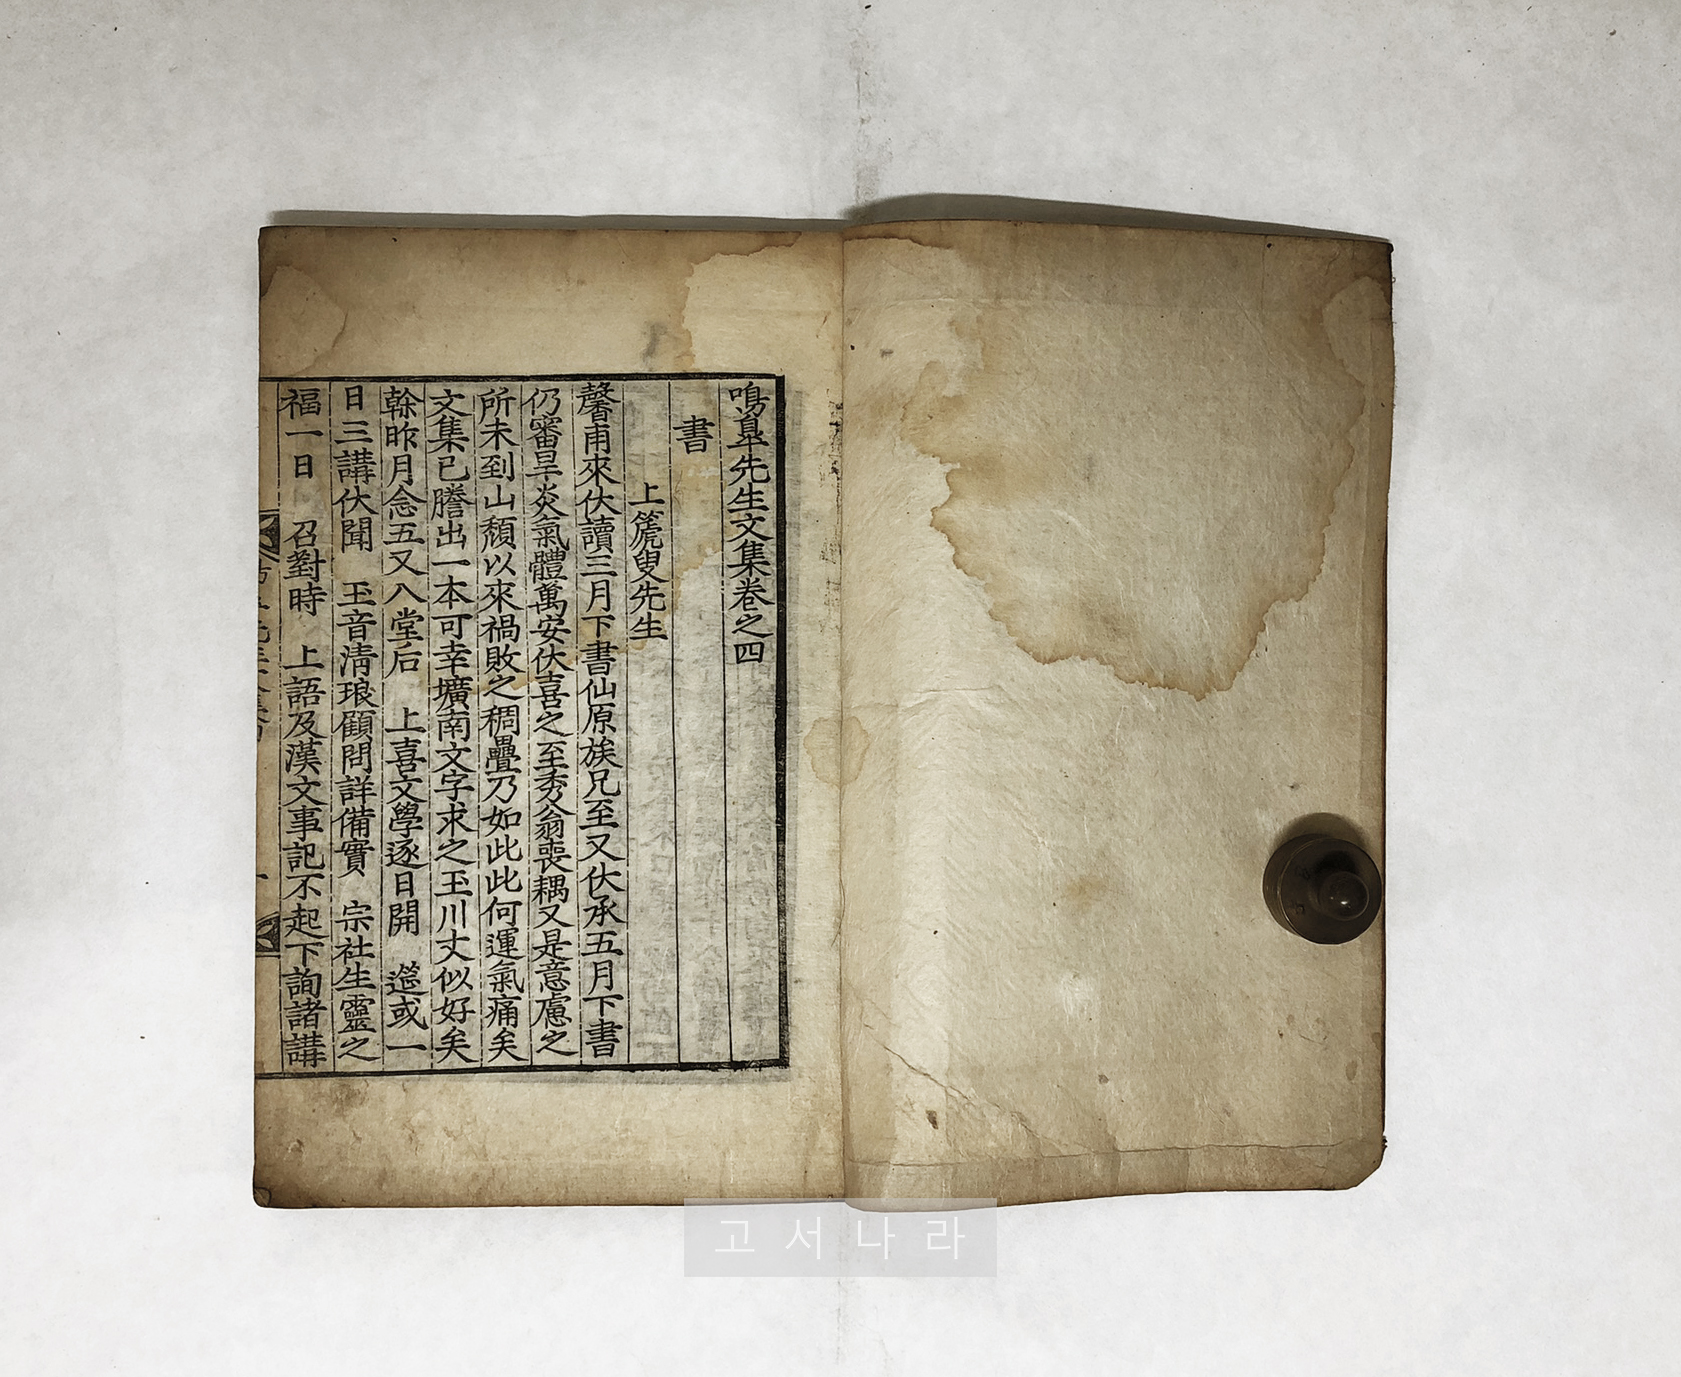 鳴皐先生文集卷之四
書
上篪叟先生
馨甫來伏讀三月下書仙原族兄至又伏承五月下書
仍審旱炎氣體萬安伏喜之至秀翁喪耦又是意慮之
所未到山頹以來禍敗之稠疊乃如此此何運氣痛矣
文集已謄出一本可幸壙南文字求之玉川丈似好矣
幹昨月念五又入堂后 上喜文學逐日開 筵或一
日三講伏聞 玉音淸琅顧問詳備實 宗社生靈之
福一日 召對時 上語及漢文事記不起下詢諸講
고서나라